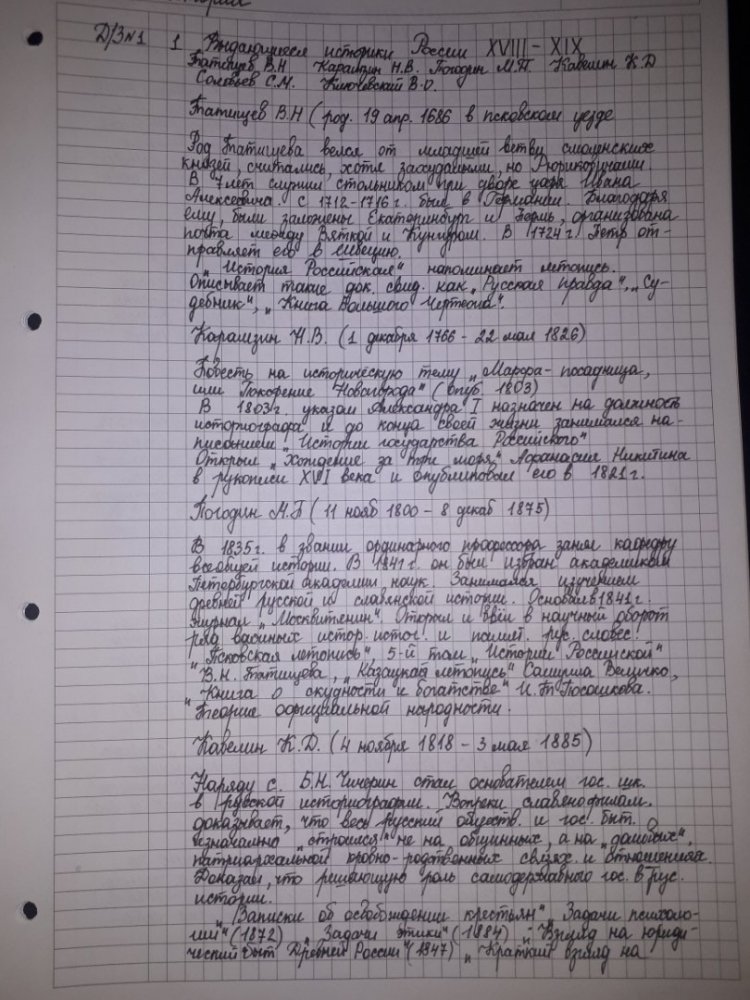 Д/З №1 1 Выдающиеся историки России XVIII - XIX
Татищев В.Н Карамзин Н.В. Погодин М.П. Кавелин К.Д
Соловьев С.М. Ключевский В.О.
Татищев В.Н (род. 19 апр. 1686 в псковском уезде
Род Татищева велся от младшей ветви смоленских
князей, считались, хотя захудалыми, но Рюриковичами.
В 7 лет служил стольником при дворе царя Ивана
Алексеевича. с 1712-1716 г. был в Германии. Благодаря
ему, были заложены Екатеринбург и Пермь, организована
почта между Вяткой и Кунгуром. В 1724 г. Петр от-
правляет его в Швецию.
„История Российская" напоминает летопись.
Описывает такие док. свид. как „Русская правда", „Су-
дебник", „Книга Большого Чертежа".
Карамзин Н.В. (1 декабря 1766 - 22 мая 1826)
Повесть на историческую тему „Марфа-посадница,
или Покорение Новагорода" (опуб. 1803)
В 1803 г. указом Александра I назначен на должность
историографа и до конца своей жизни занимался на-
писанием „Истории государства Российского"
Открыл „Хождение за три моря" Афанасия Никитина
в рукописи XVI века и опубликовал его в 1821 г.
Погодин М.П (11 нояб 1800 - 8 декаб 1875)
В 1835 г. в звании ординарного профессора занял кафедру
всеобщей истории. В 1841 г. он был избран академиком
Петербургской академии наук. Занимался изучением
древней русской и славянской истории. Основал в 1841 г.
журнал „Москвитянин". Открыл и ввёл в научный оборот
ряд важных истор. источ. и памят. рус. словес.
„Псковская летопись", 5-й том „Истории Российской"
В.Н. Татищева, „Казацкая летопись" Самуила Величко,
„Книга о скудности и богатстве" И.Т Посошкова.
Теория официальной народности.
Кавелин К.Д. (4 ноября 1818 - 3 мая 1885)
Наряду с. Б.Н. Чичерин стал основателем гос. шк.
в русской историографии. Вопреки славенофилам.
доказывает, что весь русский обществ. и гос. быт.
изначально „строился" не на общинных, а на „домовых",
патриархальной кровно-родственных связях и отношениях.
Доказал, что решающую роль самодержавного гос. в рус.
истории.
„Записки об освобождении крестьян" „Задачи психоло-
гии" (1872) „Задачи этики" (1884) „Взгляд на юриди-
ческий быт Древней России" (1847) „Краткий взгляд на